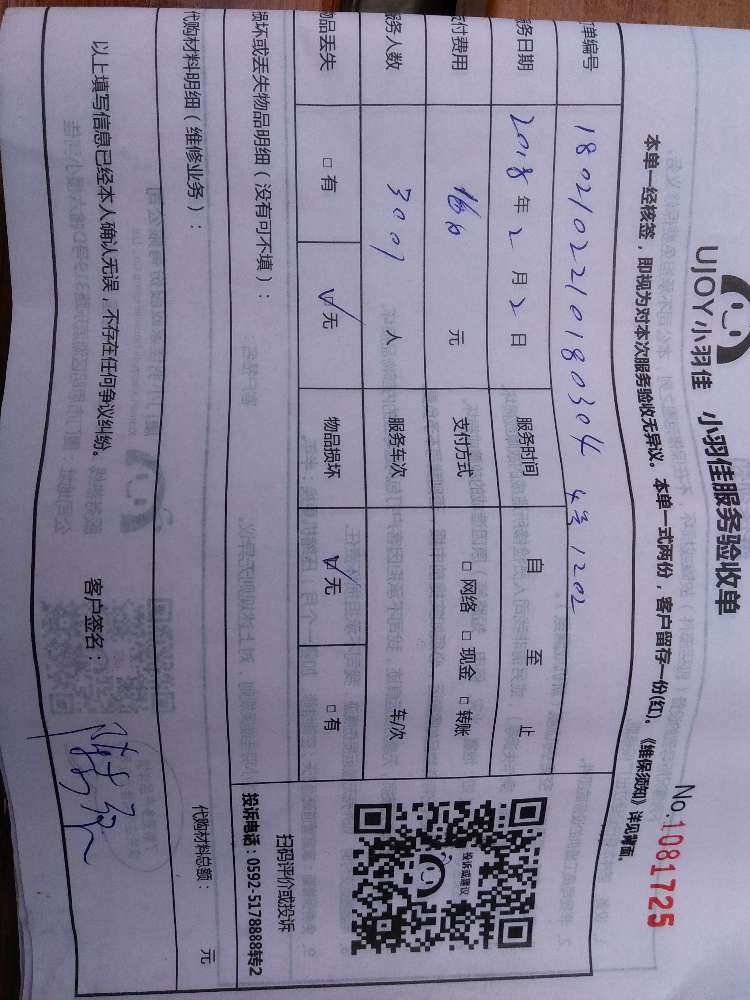 UJOY小羽佳 小羽佳服务验收单
No.1081725
本单一经核签,即视为对本次服务验收无异议。本单一式两份,客户留存一份(红)。《维保须知》详见背面。
单编号 1802102210180304 4号1202
务日期 2018年2月2日 服务时间 自 至 止
付费用 元 支付方式 □ 网络 □ 现金 □ 转账
服务人数 3007 人 服务车次 车/次
物品丢失 □ 有 ☑ 无 物品损坏 ☑ 无 □ 有
投诉或建议
扫码评价或投诉
投诉电话:0592-5178888转2
损坏或丢失物品明细(没有可不填):
代购材料明细(维修业务): 代购材料总额: 元
以上填写信息已经本人确认无误,不存在任何争议纠纷。 客户签名: